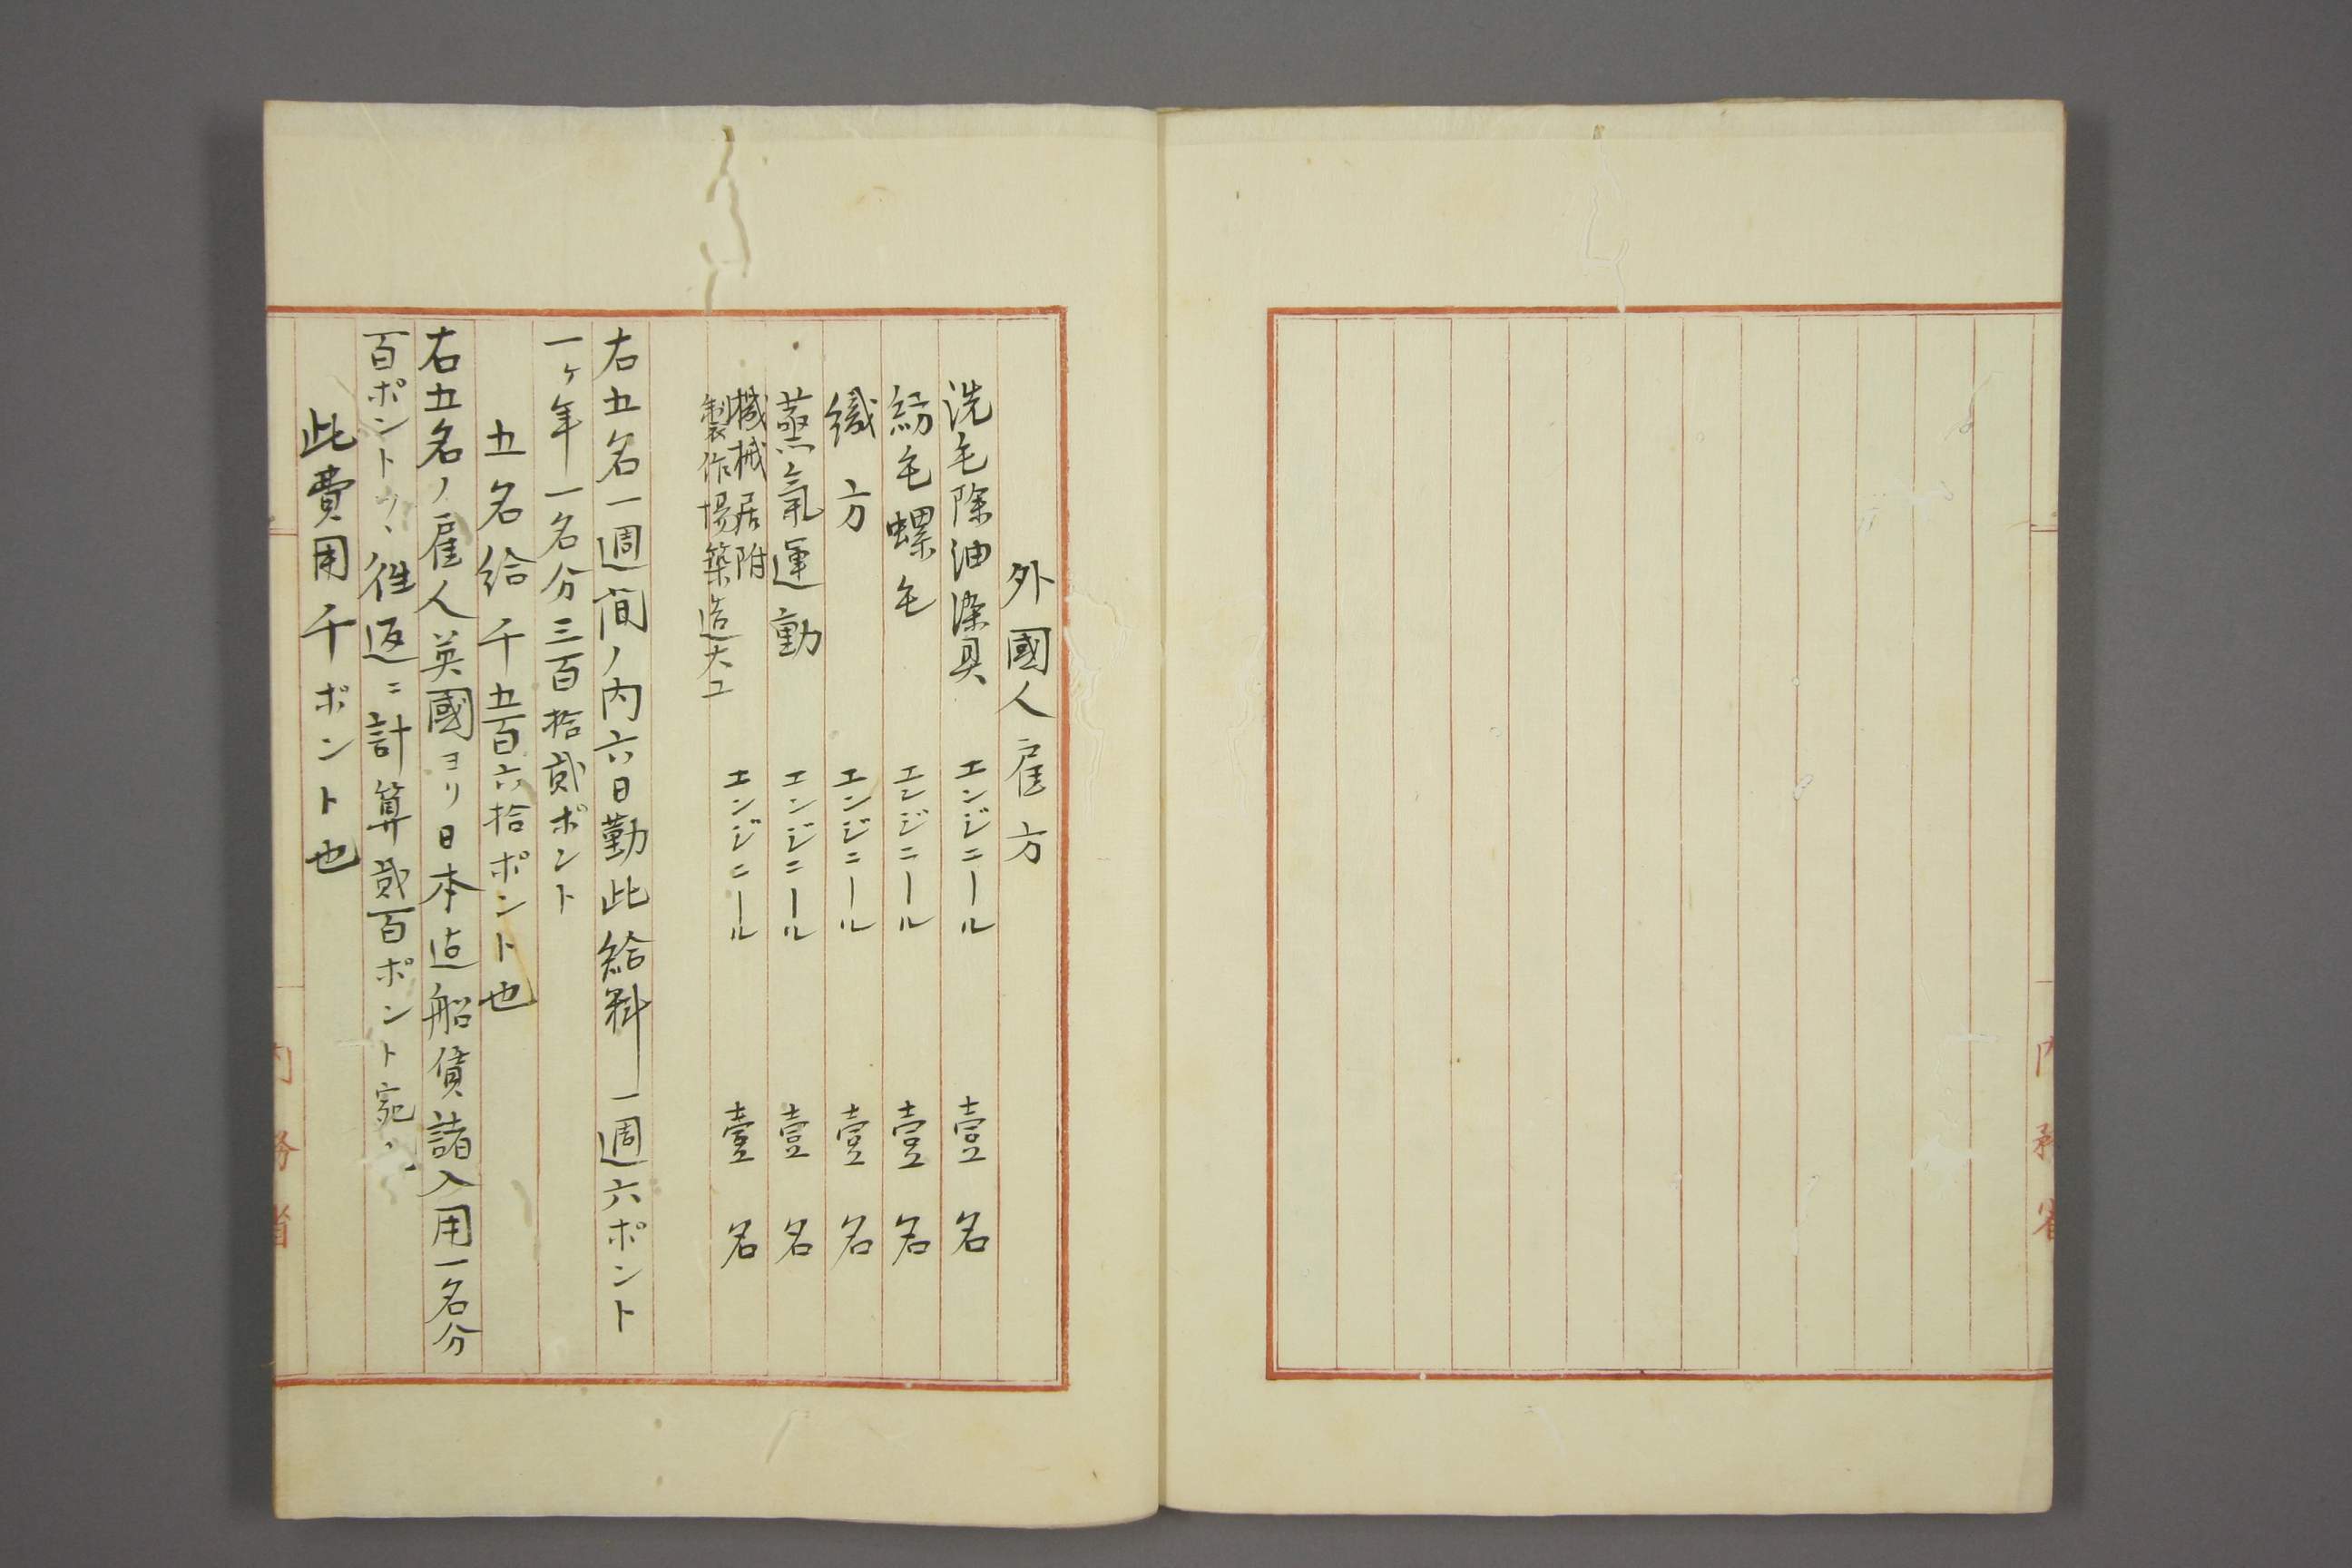 内務省
外國人雇方
洗毛除油染具　エンジニール　壹名
紡毛螺毛　エンジニール　壹名
織方　エンジニール　壹名
蒸氣運動　エンジニール　壹名
機械居附
製作場築造大工　エンジニール　壹名
右五名一週間ノ内六日勤此給料一週六ポント
一ヶ年一名分三百拾貳ポント
五名給千五百六拾ポント也
右五名ノ雇人英國ヨリ日本迠船賃諸入用一名分
百ポントツヽ徃返ニ計算貳百ポント宛
此費用千ポント也
内務省